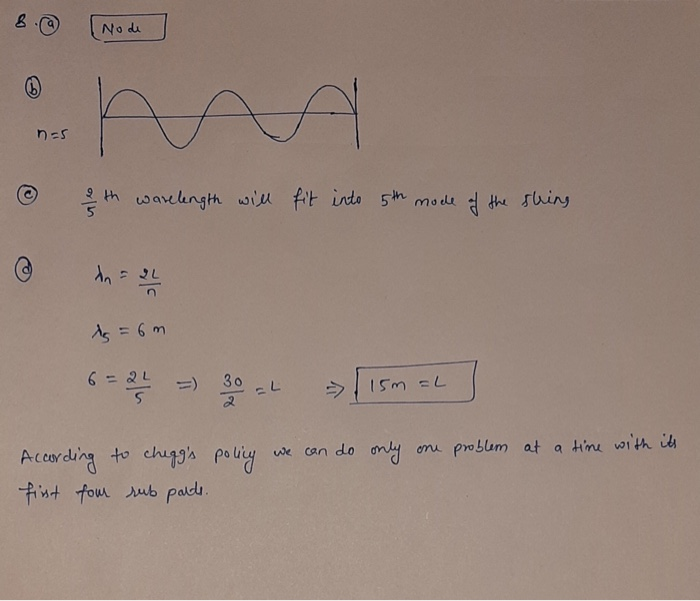 8. (a) Node
(b)
n=5
(c) 2/5 th wavelength will fit into 5th mode of the string
(d) λn = 2L/n
λ5 = 6 m
6 = 2L/5 => 30/2 = L => 15m = L
According to chegg's policy we can do only one problem at a time with its
first four sub parts.